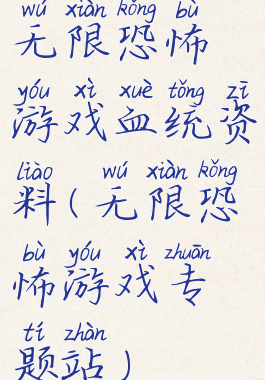 wú xiàn kǒng bù
无限恐怖
yóu xì xuè tǒng zī
游戏血统资
liào wú xiàn kǒng
料(无限恐
bù yóu xì zhuān
怖游戏专
tí zhàn
题站)